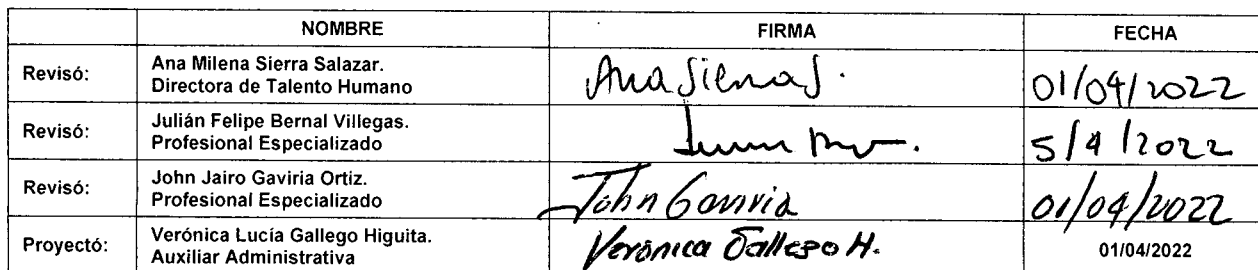 NOMBRE FIRMA FECHA
Revisó: Ana Milena Sierra Salazar.
Directora de Talento Humano
Ana Sierra S. 01/04/2022
Revisó: Julián Felipe Bernal Villegas.
Profesional Especializado
5/4/2022
Revisó: John Jairo Gaviria Ortiz.
Profesional Especializado
John Gaviria 01/04/2022
Proyectó: Verónica Lucía Gallego Higuita.
Auxiliar Administrativa
Verónica Gallego H. 01/04/2022